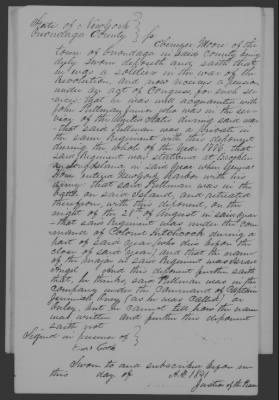 State of New York }
Onondaga County } ss
Ebenezer Moore of the
town of Onondaga in said county being
duly sworn deposeth and saith that
he was a soldier in the war of the
Revolution, and now receives a pension
under an act of Congress for such ser
vices, that he was well acquainted with
John Pullman Junior who was in the ser
vice of the United States during said war
that said Pullman was a private in
the same Regiment with this deponent
during the whole of the year 1776, that
said Regiment was stationed at Brooklin
on Long Island in said year when General
Howe entered New York harbor with his
army that said Pullman was in the
battle on said Island, and retreated
therefrom with this deponent, on the
night of the of August in said year
that said Regiment was under the com
mand of Colonel Hitchcock during a
part of said year, (who died before the
close of said year) and that the name
of the major of said Regiment was
Angel And this deponent further saith
that, he thinks, said Pullman was in the
company under the command of Captain
Jeremiah (as he was called)
only, but he cannot tell how the name
was written And further this deponent
saith not
Signed in presence of }
Sworn to and subscribed before me
this day of A.D. 18
Justice of the Peace